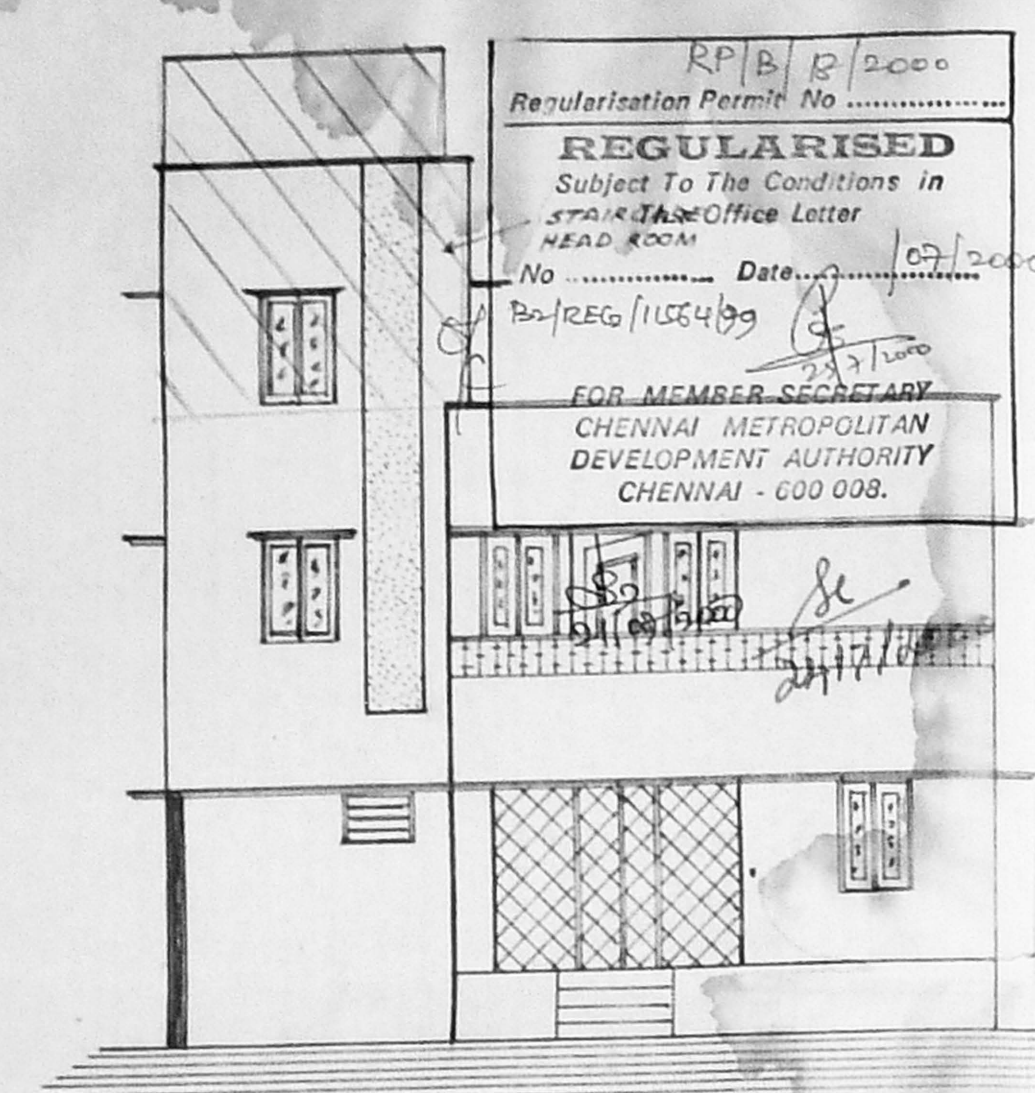 RP/B/ /2000
Regularisation Permit No ..................
REGULARISED
Subject To The Conditions in
This Office Letter
STAIR CASE
HEAD ROOM
No ............... Date..................
/07/2000
B2/REG/11564/99
25/7/2000
FOR MEMBER SECRETARY
CHENNAI METROPOLITAN
DEVELOPMENT AUTHORITY
CHENNAI - 600 008.